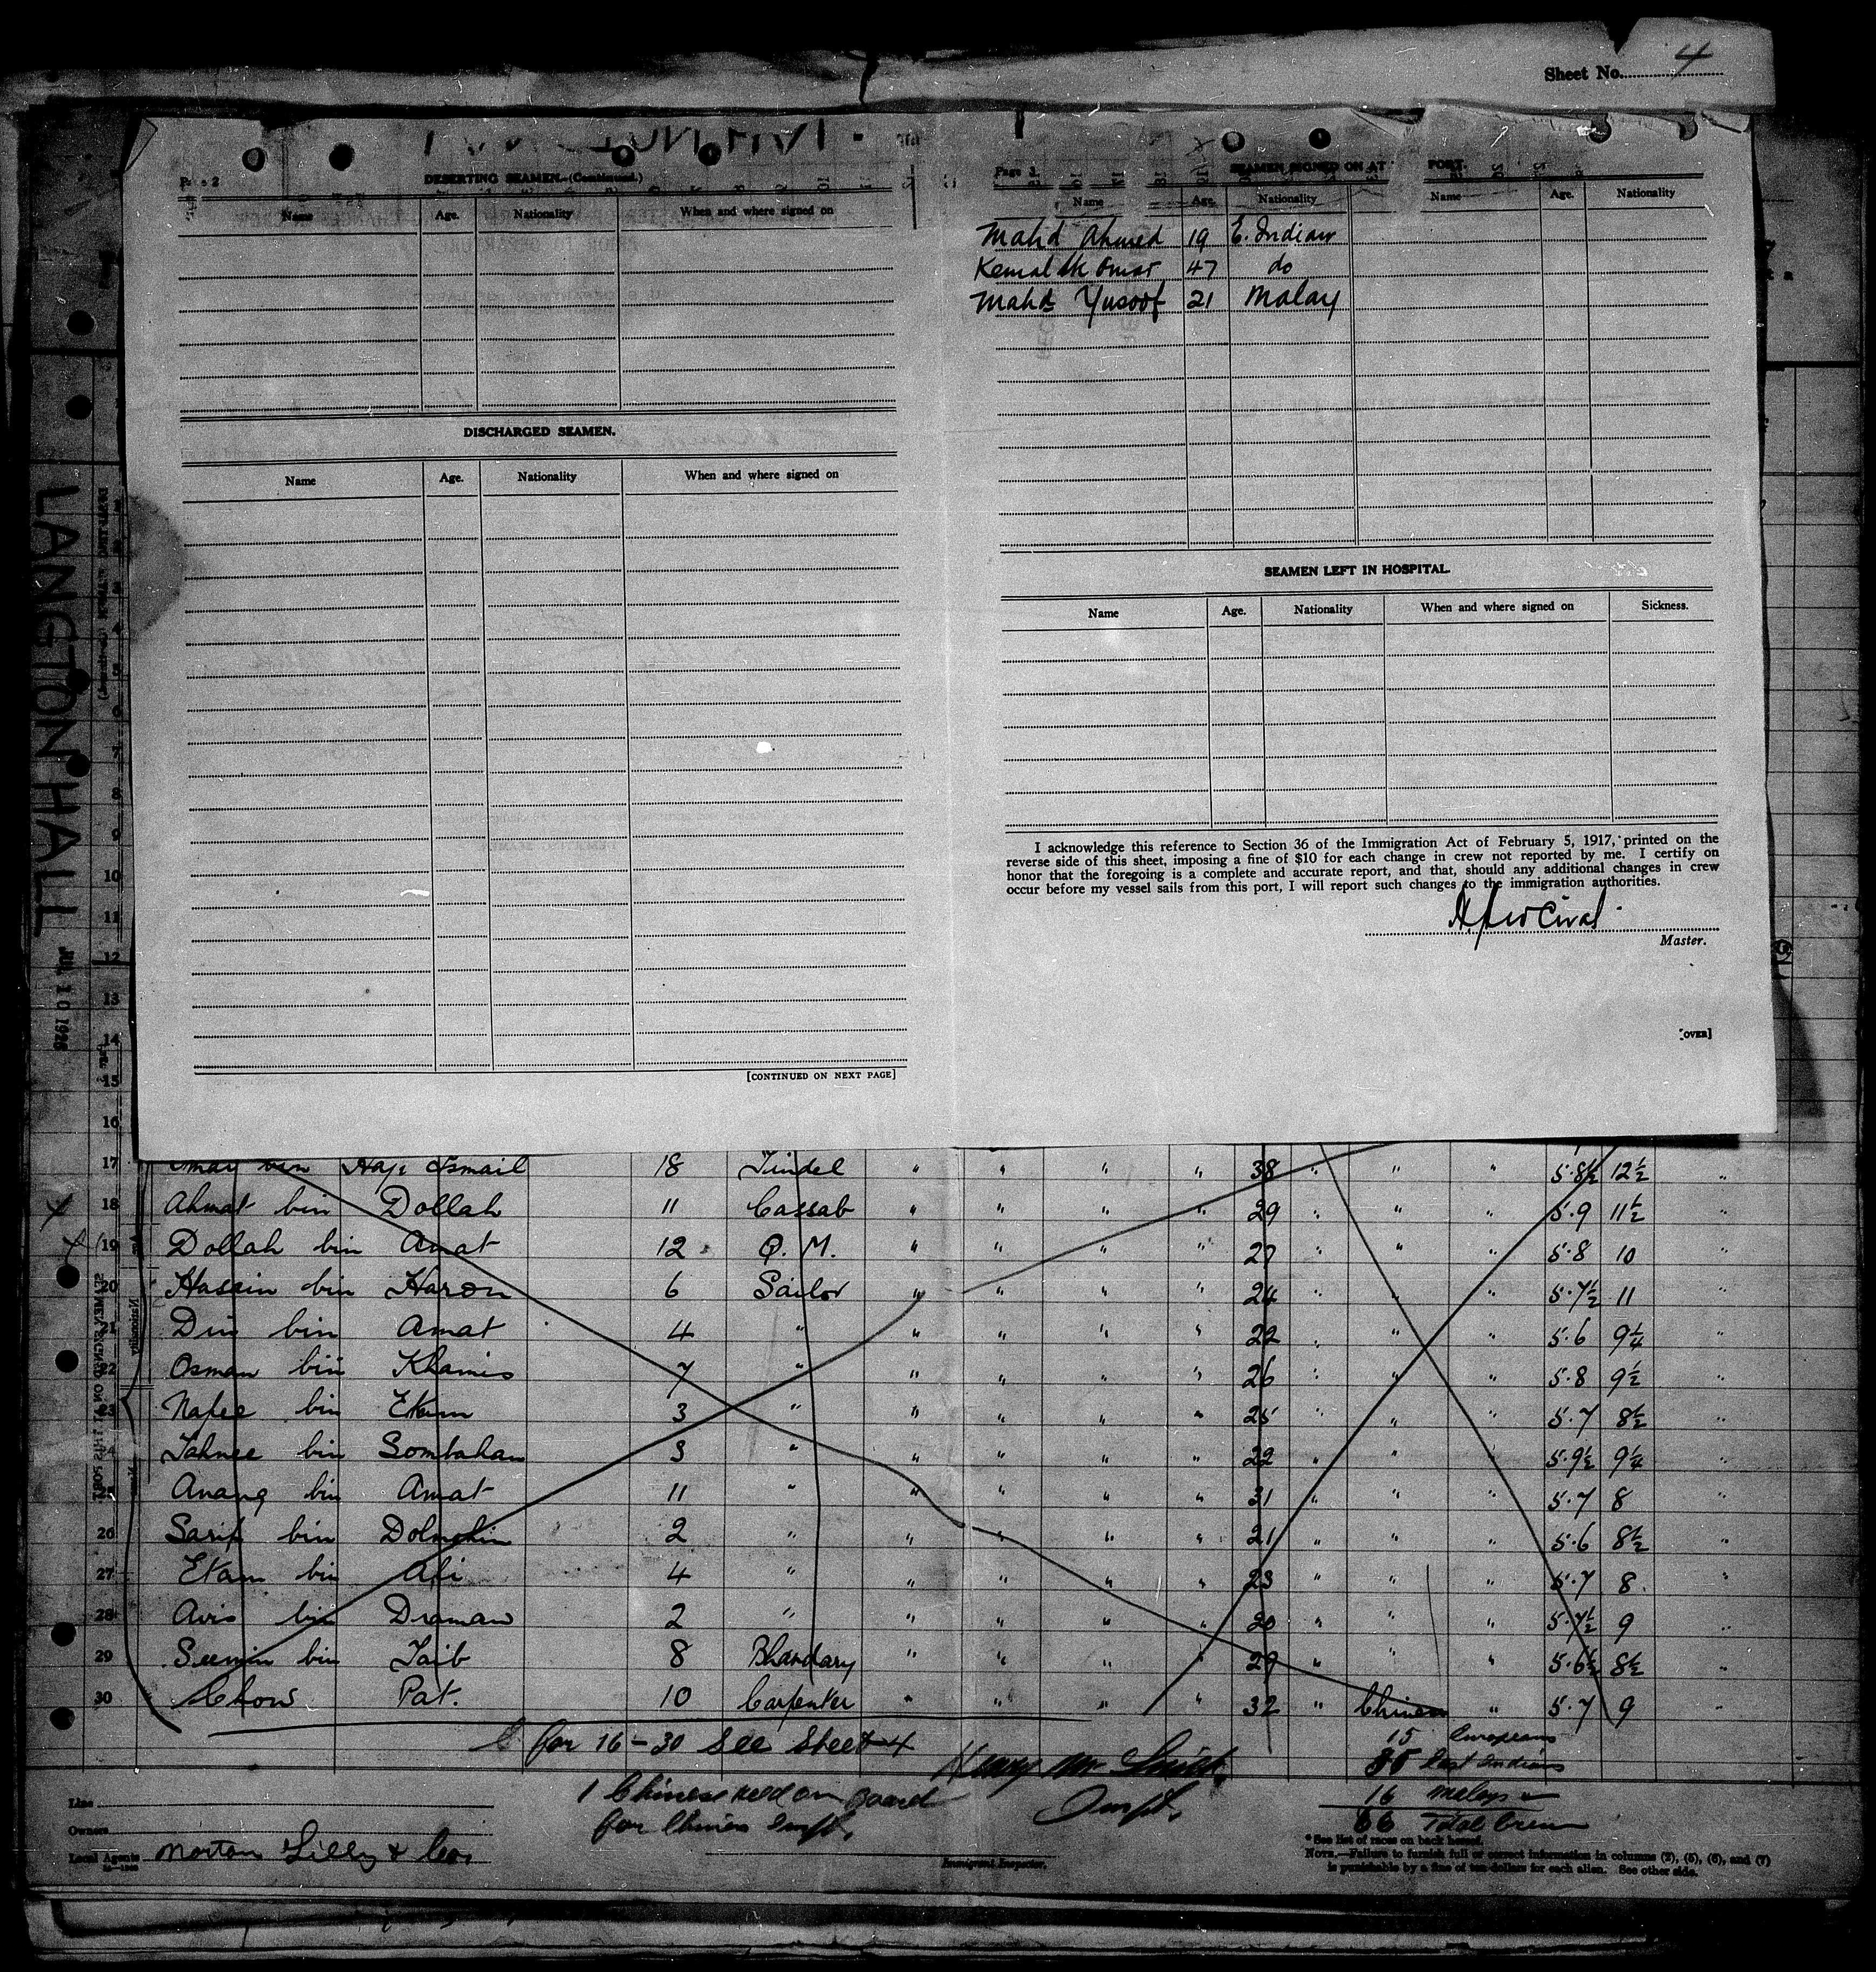 Sheet No. 4
Page 2
DESERTING SEAMEN.-(Continued.)
Name Age. Nationality When and where signed on
DISCHARGED SEAMEN.
Name Age. Nationality When and where signed on
[CONTINUED ON NEXT PAGE]
Page 3
SEAMEN SIGNED ON AT PORT.
Name Age. Nationality Name Age. Nationality
Mahd Ahmed 19 E. Indian
Kemal Omar 47 do
Mahd Yusoof 21 Malay
SEAMEN LEFT IN HOSPITAL.
Name Age. Nationality When and where signed on Sickness.
I acknowledge this reference to Section 36 of the Immigration Act of February 5, 1917, printed on the
reverse side of this sheet, imposing a fine of $10 for each change in crew not reported by me. I certify on
honor that the foregoing is a complete and accurate report, and that, should any additional changes in crew
occur before my vessel sails from this port, I will report such changes to the immigration authorities.
H Percival
Master.
[OVER]
LANGTON HALL
JUL 10 1926
8
9
10
11
12
13
14
15
16
17 Omar bin Haji Ismail 18 Tindel " " " " 38 " " " 5.8½ 12½ "
18 Ahmat bin Dollah 11 Cassab " " " " 29 " " " 5.9 11½ "
19 Dollah bin Amat 12 Q. M. " " " " 27 " " " 5.8 10 "
20 Hassin bin Haron 6 Sailor " " " " 24 " " " 5.7½ 11 "
21 Din bin Amat 4 " " " " " 22 " " " 5.6 9¼ "
22 Osman bin Khamis 7 " " " " " 26 " " " 5.8 9½ "
23 Nafee bin Ekam 3 " " " " " 25 " " " 5.7 8½ "
24 Tahnee bin Sombahan 3 " " " " " 22 " " " 5.9½ 9¼ "
25 Anang bin Amat 11 " " " " " 31 " " " 5.7 8 "
26 Sarif bin 2 " " " " " 21 " " " 5.6 8½ "
27 Ekam bin Ali 4 " " " " " 23 " " " 5.7 8 "
28 Avis bin Draman 2 " " " " " 20 " " " 5.7½ 9 "
29 Seemin bin Taib 8 Bhandary " " " " 29 " " " 5.6½ 8½ "
30 Chow Pat. 10 Carpenter " " " " 32 " Chinese " 5.7 9 "
for 16-30 See Sheet 4
1 Chinese held on board
for Chinese Inspt.
Henry M. Smith
Inspt.
15 Europeans
35 East Indians
16 Malays
66 Total Crew
Line
Owners
Local Agents Norton Lilly & Co.
Immigrant Inspector.
* See list of races on back hereof.
NOTE.—Failure to furnish full or correct information in columns (2), (5), (6), and (7)
is punishable by a fine of ten dollars for each alien. See other side.